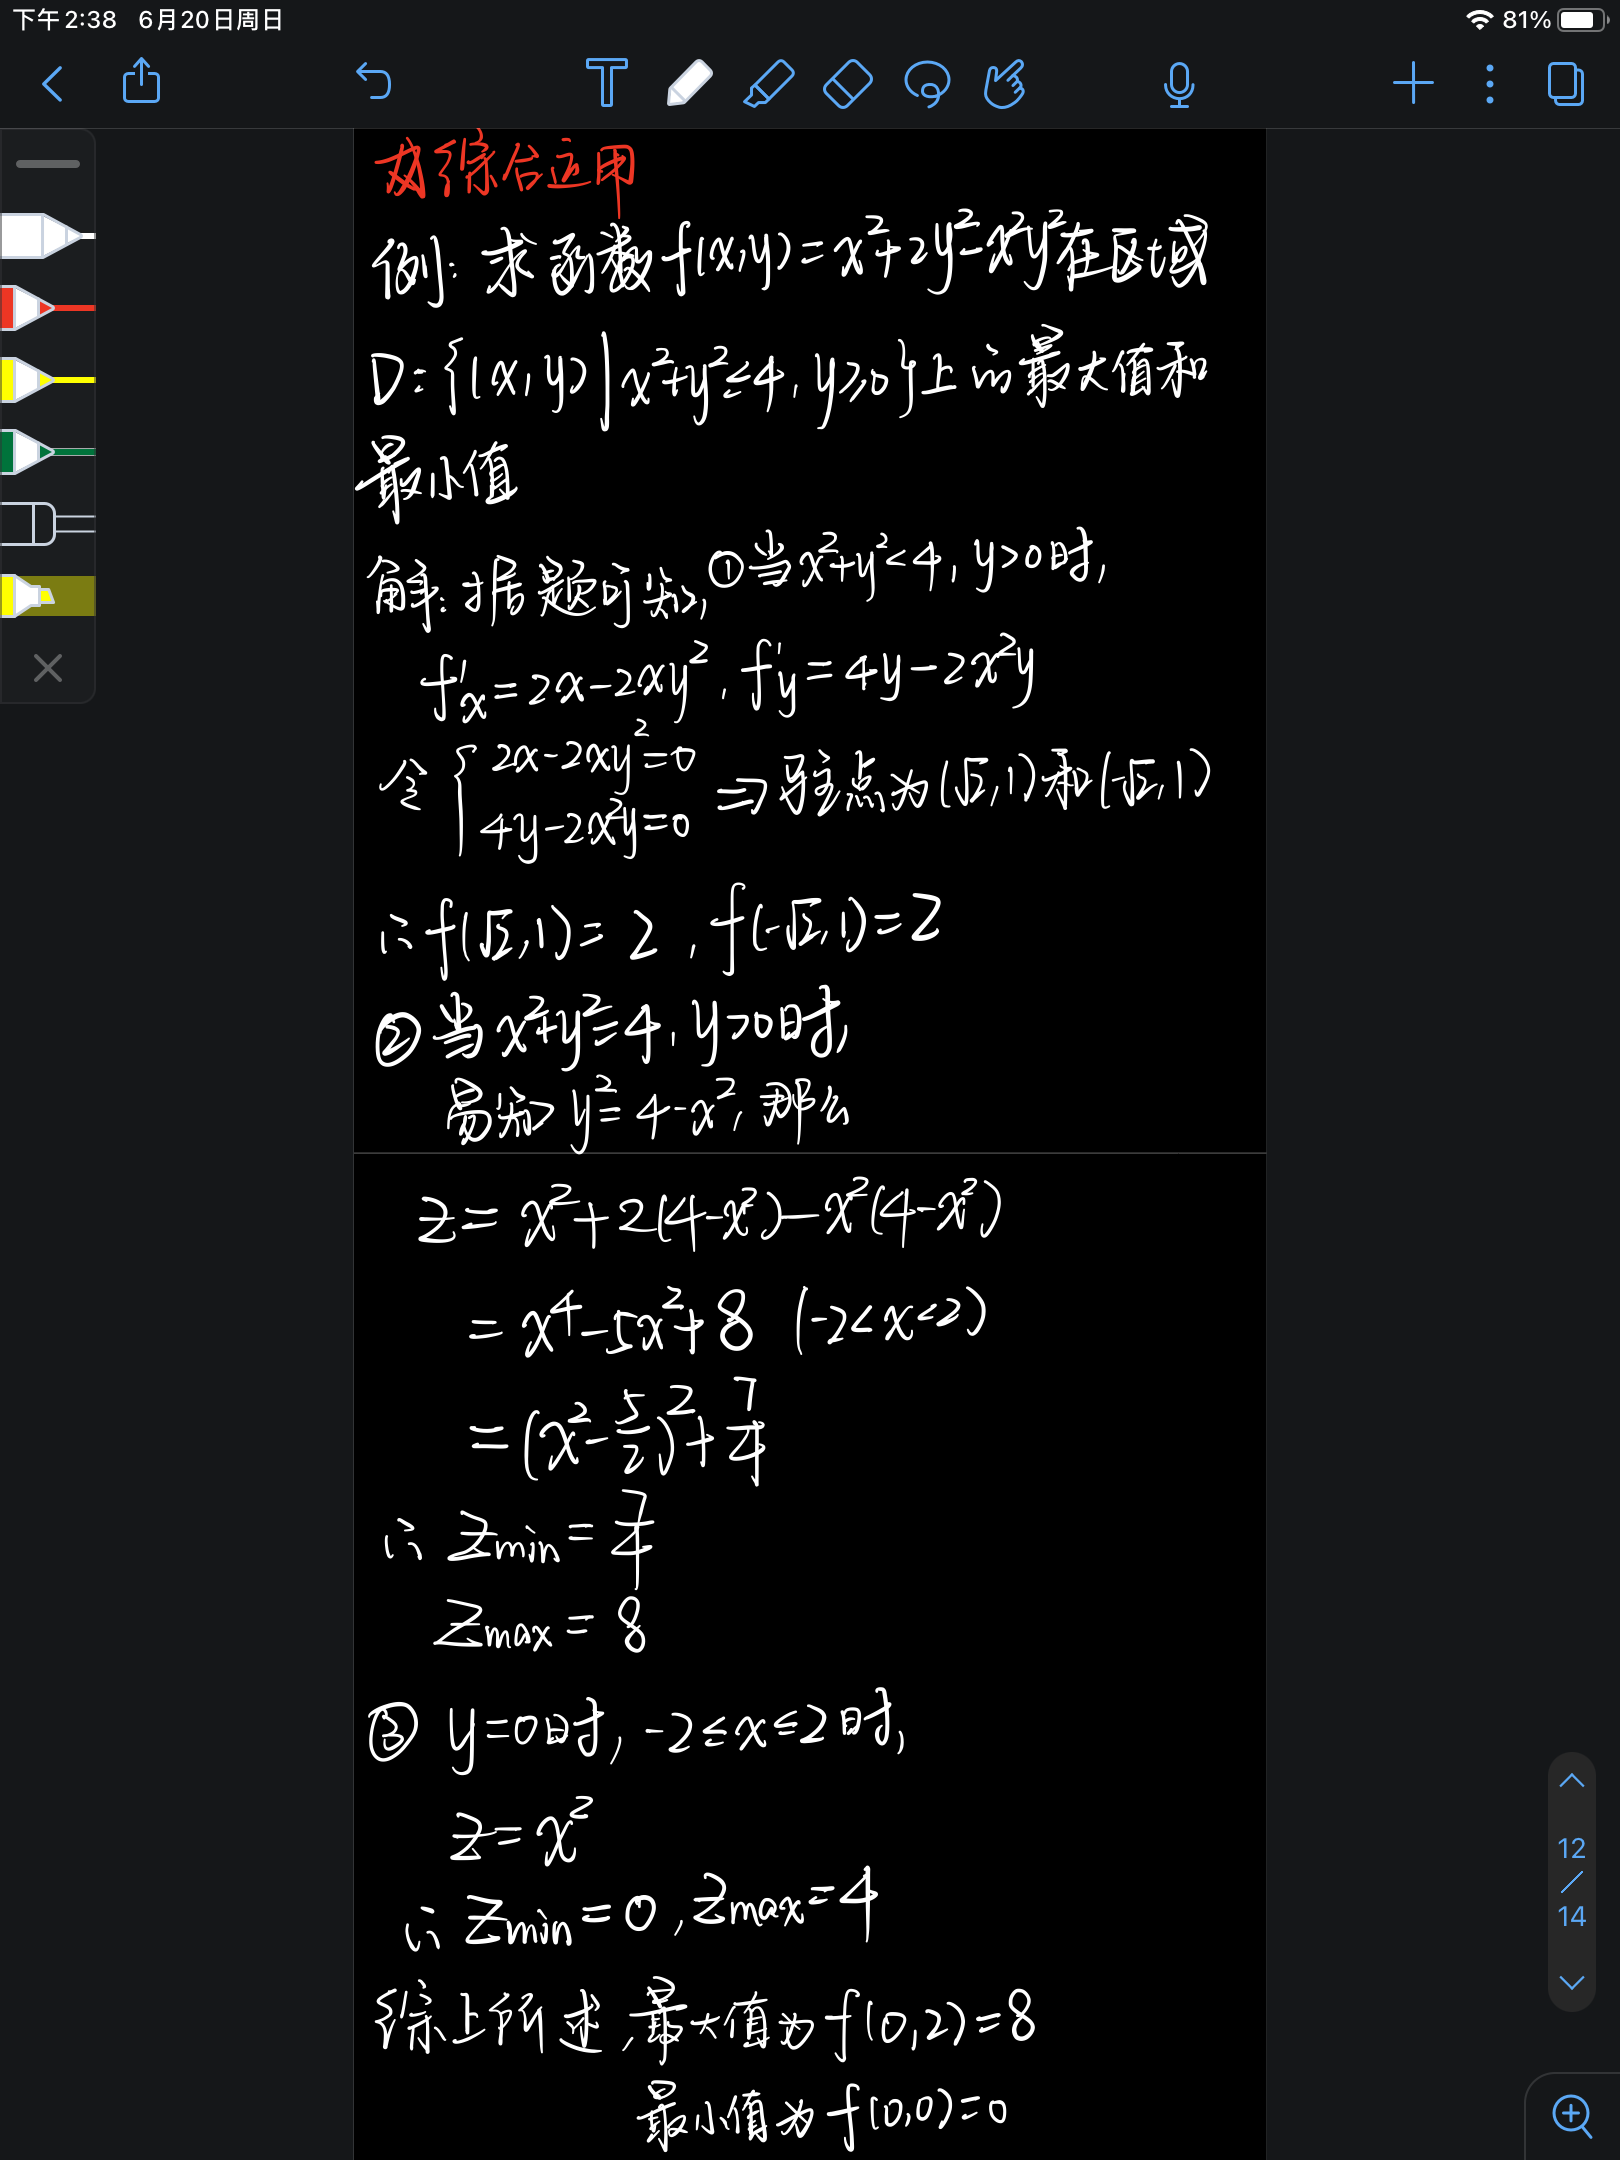 下午2:38 6月20日周日
81%
综合运用
例: 求函数f(x,y)=x²+2y²-x²y²在区域
D={(x,y)|x²+y²≤4, y≥0}上的最大值和
最小值
解: 据题可知, ①当x²+y²<4, y>0时,
f'x=2x-2xy², f'y=4y-2x²y
令 { 2x-2xy²=0
4y-2x²y=0 ⇒ 驻点为(√2,1)和(-√2,1)
∴ f(√2,1)=2, f(-√2,1)=2
②当x²+y²=4, y>0时,
易知 y²=4-x², 那么
z=x²+2(4-x²)-x²(4-x²)
=x⁴-5x²+8 (-2<x<2)
=(x²-5/2)²+7/4
∴ zmin=7/4
zmax=8
③ y=0时, -2≤x≤2时,
z=x²
∴ zmin=0, zmax=4
综上所述, 最大值为f(0,2)=8
最小值为f(0,0)=0
12
/
14